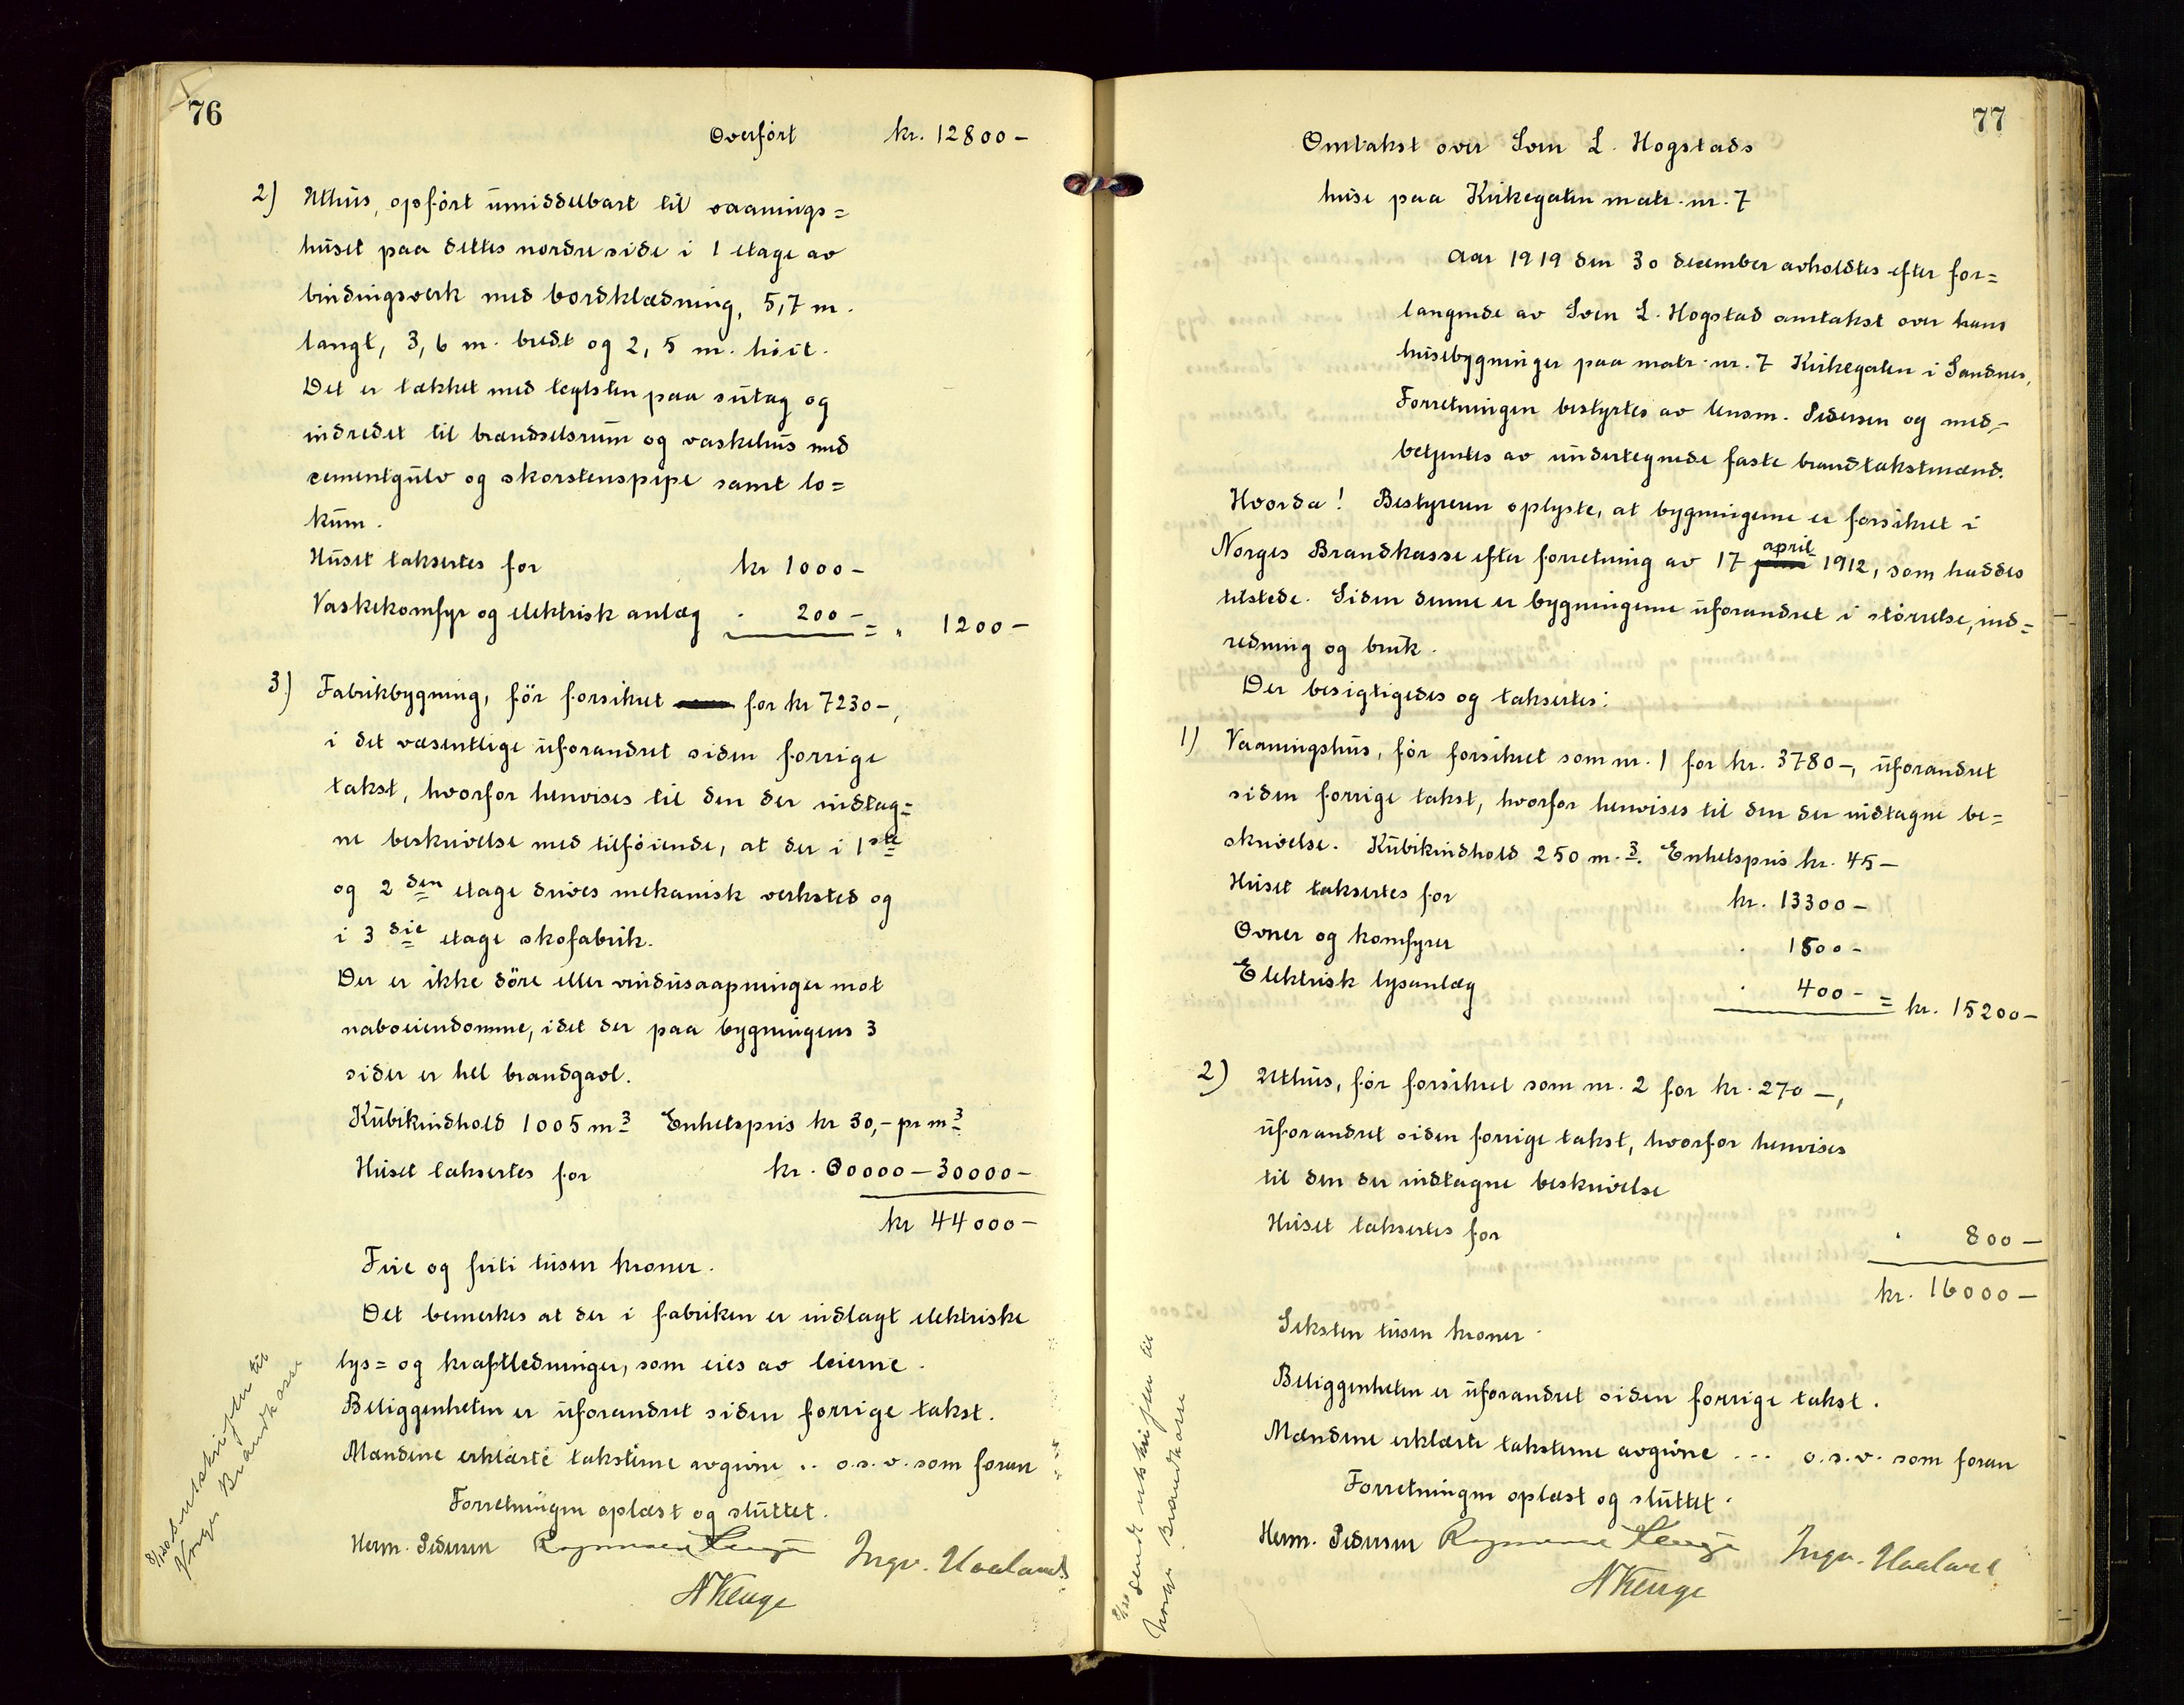 76
Overført kr. 12800 –
2) Uthus, opført umiddelbart til vaanings=
huset paa dettes nordre side i 1 etage av
bindingsverk med bordklædning, 5,7 m.
langt, 3,6 m. bredt og 2,5 m. høit.
Det er tækket med teglsten paa sutag og
indredet til brændselsrum og vaskehus med
cementgulv og skorstenspipe samt lo=
kum.
Huset taksertes for kr 1000 –
Vaskekomfyr og elektrisk anlæg " 200 – = " 1200 –
3) Fabrikbygning, før forsikret for kr 7230 –,
i det væsentlige uforandret siden forrige
takst, hvorfor henvises til den der indtag=
ne beskrivelse med tilføiende, at der i 1ste
og 2den etage drives mekanisk verksted og
i 3die etage skofabrik.
Der er ikke døre eller vindusaapninger mot
naboeiendomme, idet der paa bygningens 3
sider er hel brandgavl.
Kubikindhold 1005 m3 Enhetspris kr 30,– pr m3
Huset taksertes for kr. 30000 – 30000 –
kr 44000 –
Fire og firti tusen kroner.
Det bemerkes at der i fabriken er indlagt elektriske
lys= og kraftledninger, som eies av leierne.
Beliggenheten er uforandret siden forrige takst.
Mændene erklærte taksterne avgivne .. o.s.v. som foran
Forretningen oplæst og sluttet.
Herm. Pedersen Ingv. Haaland
N Kenge
8/1 20 Sendt utskriften til
Norges Brandkasse
77
Omtakst over Sven L. Hogstads
huse paa Kirkegaten matr. nr. 7
Aar 1919 den 30 december avholdtes efter for=
langende av Sven L. Hogstad omtakst over hans
husebygninger paa matr. nr. 7 Kirkegaten i Sandnes.
Forretningen bestyrtes av lensm. Pedersen og med=
betjentes av undertegnede faste brandtakstmænd.
Hvorda! Bestyreren oplyste, at bygningerne er forsikret i
Norges Brandkasse efter forretning av 17 juni april 1912, som haddes
tilstede. Siden denne er bygningerne uforandret i størrelse, ind=
redning og bruk.
Der besigtigedes og taksertes:
1) Vaaningshus, før forsikret som nr. 1 for kr. 3780 –, uforandret
siden forrige takst, hvorfor henvises til den der indtagne be=
skrivelse. Kubikindhold 250 m.3. Enhetspris kr. 45 –
Huset taksertes for kr. 13300 –
Ovner og komfyrer " 1500 –
Elektrisk lysanlæg " 400 – = kr. 15200 –
2) Uthus, før forsikret som nr. 2 for kr. 270 –,
uforandret siden forrige takst, hvorfor henvises
til den der indtagne beskrivelse
Huset taksertes for " 800 –
kr. 16000 –
Seksten tusen kroner.
Beliggenheten er uforandret siden forrige takst.
Mændene erklærte taksterne avgivne ... o.s.v. som foran
Forretningen oplæst og sluttet.
Herm. Pedersen Ingv. Haaland
N Kenge
8/1 20 Sendt utskriften til
Norges Brandkasse